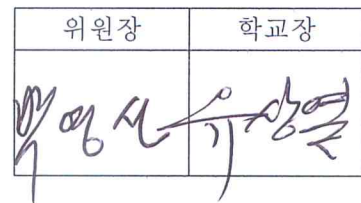 위원장 학교장
백영신 유상열